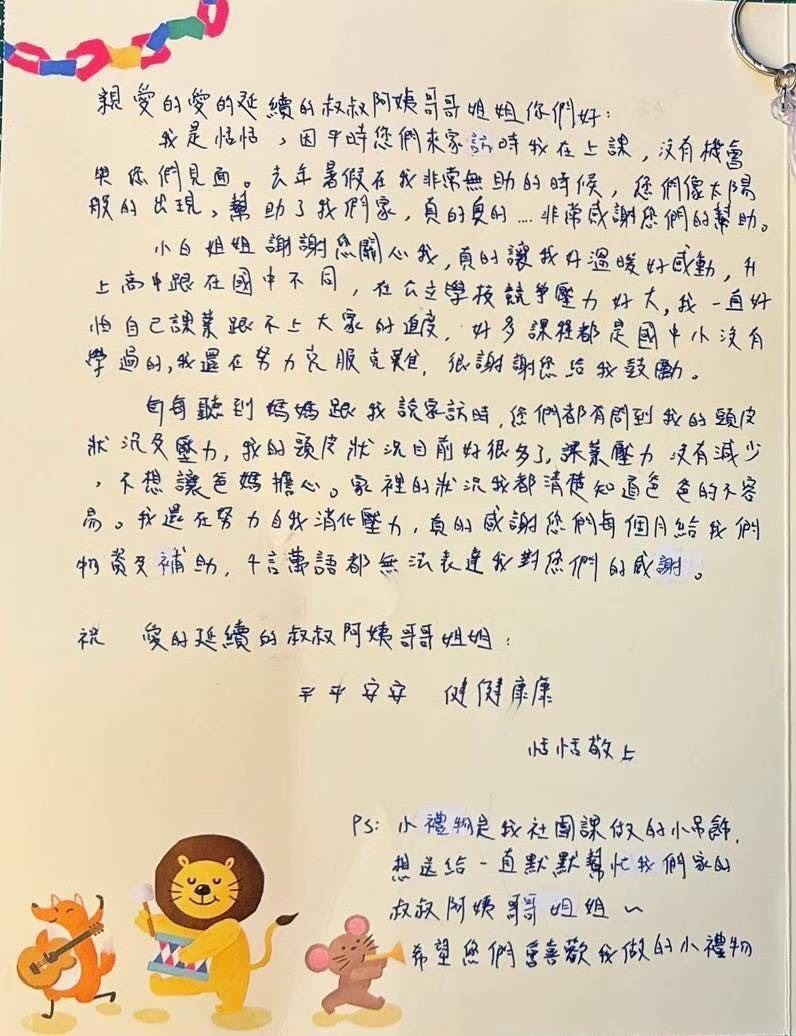 親愛的愛的延續的叔叔阿姨哥哥姐姐你們好:
我是恬恬，因平時您們來家訪時我在上課，沒有機會
與您們見面。去年暑假在我非常無助的時候，您們像太陽
般的出現，幫助了我們家，真的真的....非常感謝您們的幫助。
小白姐姐謝謝您關心我，真的讓我好溫暖好感動，升
上高中跟在國中不同，在公立學校競爭壓力好大，我一直好
怕自己課業跟不上大家的進度，好多課程都是國中小沒有
學過的，我還在努力克服克難，很謝謝您給我鼓勵。
每聽到媽媽跟我說家訪時，您們都有問到我的頭皮
狀況及壓力，我的頭皮狀況目前好很多了，課業壓力沒有減少
，不想讓爸媽擔心。家裡的狀況我都清楚知道爸爸的不容
易。我還在努力自我消化壓力，真的感謝您們每個月給我們
物資及補助，千言萬語都無法表達我對您們的感謝。
祝 愛的延續的叔叔阿姨哥哥姐姐:
平平安安 健健康康
恬恬敬上
PS: 小禮物是我社團課做的小吊飾，
想送給一直默默幫忙我們家的
叔叔阿姨哥哥姐姐~
希望您們會喜歡我做的小禮物